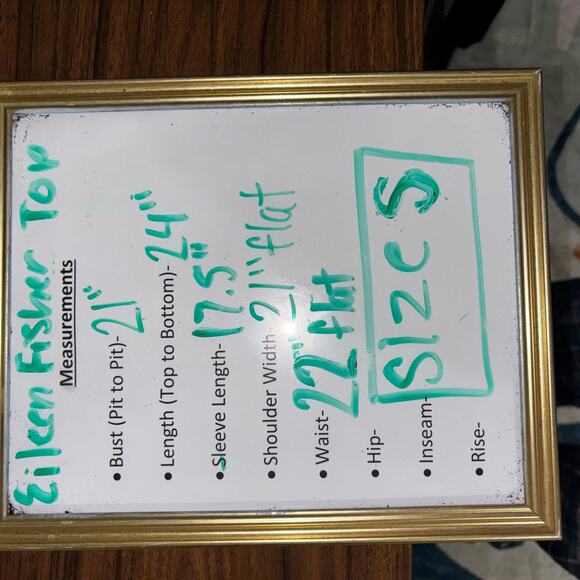 Eileen Fisher Top
Measurements
• Bust (Pit to Pit)- 21"
• Length (Top to Bottom)- 24"
• Sleeve Length- 17.5"
• Shoulder Width- 21" flat
• Waist- 22" flat
• Hip-
• Inseam-
• Rise-
Size S